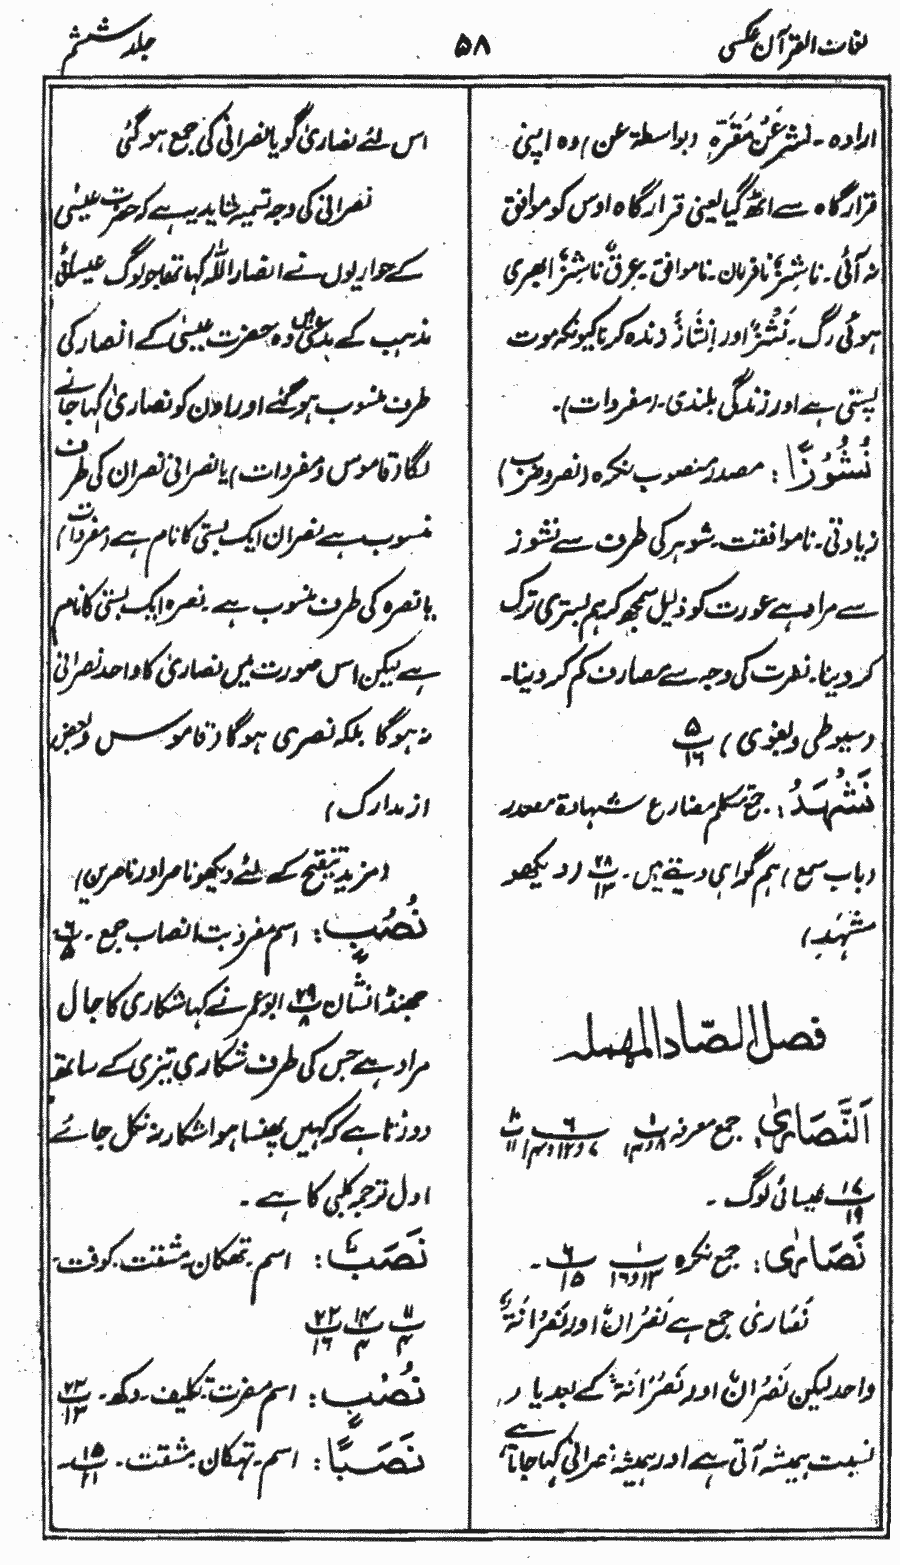 لغات القرآن عکسی
۵۸
جلد ششم
ارادہ۔ نشز عن مقرہ (بواسطۂ عن) وہ اپنی
قرارگاہ سے اٹھ گیا یعنی قرارگاہ اوس کو موافق
نہ آئی۔ ناشز نافرمان۔ ناموافق۔ عرق ناشز ابھری
ہوئی رگ۔ نشز اور انشاز زندہ کرنا کیونکہ موت
پستی ہے اور زندگی بلندی۔ (مفردات)۔
نُشُوزًا: مصدر منصوب نکرہ (نصر و ضرب)
زیادتی۔ ناموافقت۔ شوہر کی طرف سے نشوز
سے مراد ہے عورت کو ذلیل سمجھ کر ہم بستری ترک
کر دینا۔ نفرت کی وجہ سے مصارف کم کر دینا۔
(سیوطی و بغوی) ۵/۱۶
نَشْهَدُ: جمع متکلم مضارع شهادة مصدر
(باب سمع) ہم گواہی دیتے ہیں۔ ۲۸/۱۳ (دیکھو
شهد)
فصل الصاد المهملہ
اَلنَّصَارٰی: جمع معرفہ
۱۷/۱۹ عیسائی لوگ۔
نَصَارٰی: جمع نکرہ ۱/۱۳و۱۶ ۶/۱۵۔
نصاریٰ جمع ہے نصران اور نصرانۃ
واحد لیکن نصران اور نصرانۃ کے بعد یاء
نسبت ہمیشہ آتی ہے اور ہمیشہ نصرانی کہا جاتا ہے
اس لئے نصاریٰ گویا نصرانی کی جمع ہو گئی
نصرانی کی وجہ تسمیہ شاید یہ ہے کہ حضرت عیسٰی
کے حواریوں نے انصار اللہ کہا تھا جو لوگ عیسائی
مذہب کے مدعی ہیں وہ حضرت عیسٰی کے انصار کی
طرف منسوب ہو گئے اور اون کو نصاریٰ کہا جانے
لگا (قاموس و مفردات) یا نصرانی نصران کی طرف
منسوب ہے نصران ایک بستی کا نام ہے (مفردات)
یا نصرہ کی طرف منسوب ہے۔ نصرہ ایک بستی کا نام
ہے لیکن اس صورت میں نصاریٰ کا واحد نصرانی
نہ ہوگا بلکہ نصری ہوگا (قاموس و بعض
از مدارک)
(مزید تنقیح کے لئے دیکھو ناصر اور ناصرین)
نُصُبٍ: اسم مفرد بت انصاب جمع۔ ۶/۵
جھنڈا نشان ۲۹/۸ ابو عمر نے کہا شکاری کا جال
مراد ہے جس کی طرف شکاری تیزی کے ساتھ
دوڑتا ہے کہ کہیں پھنسا ہوا شکار نہ نکل جائے
اول ترجمہ کلبی کا ہے۔
نَصَبٌ: اسم۔ تھکان۔ مشقت۔ کوفت۔
۱۱/۴ ۱۴/۴ ۲۲/۱۶
نُصْبٍ: اسم مفرد۔ تکلیف۔ دکھ۔ ۲۳/۱۳
نَصَبًا: اسم۔ تھکان۔ مشقت۔ ۱۵/۲۱